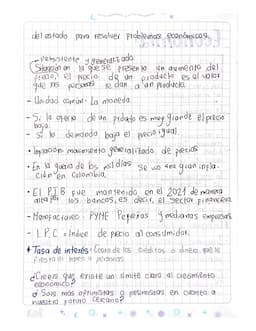 del estado para resolver problemas económicos.
- Persistente y generalizada
Situación en la que se presenta un aumento del
precio, el precio de un producto es el valor
que las personas le dan a un producto.
- Unidad común: La moneda.
- Si la oferta de un producto es muy grande el precio
baja.
- Si la demanda baja el precio igual.
• Inflación: movimiento generalizado de precios
• En la guerra de los mil días se vio una gran infla-
ción en Colombia.
• El P.I.B fue mantenido en el 2021 de manera
alta por los bancos, es decir, el sector financiero
- PYME Pequeñas y medianas empresas
- I.P.C = Indice de precio al consumidor.
* Tasa de interés: Costo de los créditos o dinero que le
presta el banco a personas.
¿Crees que existe un límite claro al crecimiento
económico?
¿Sois más optimistas o pesimistas en cuanto a
nuestro futuro cercano?